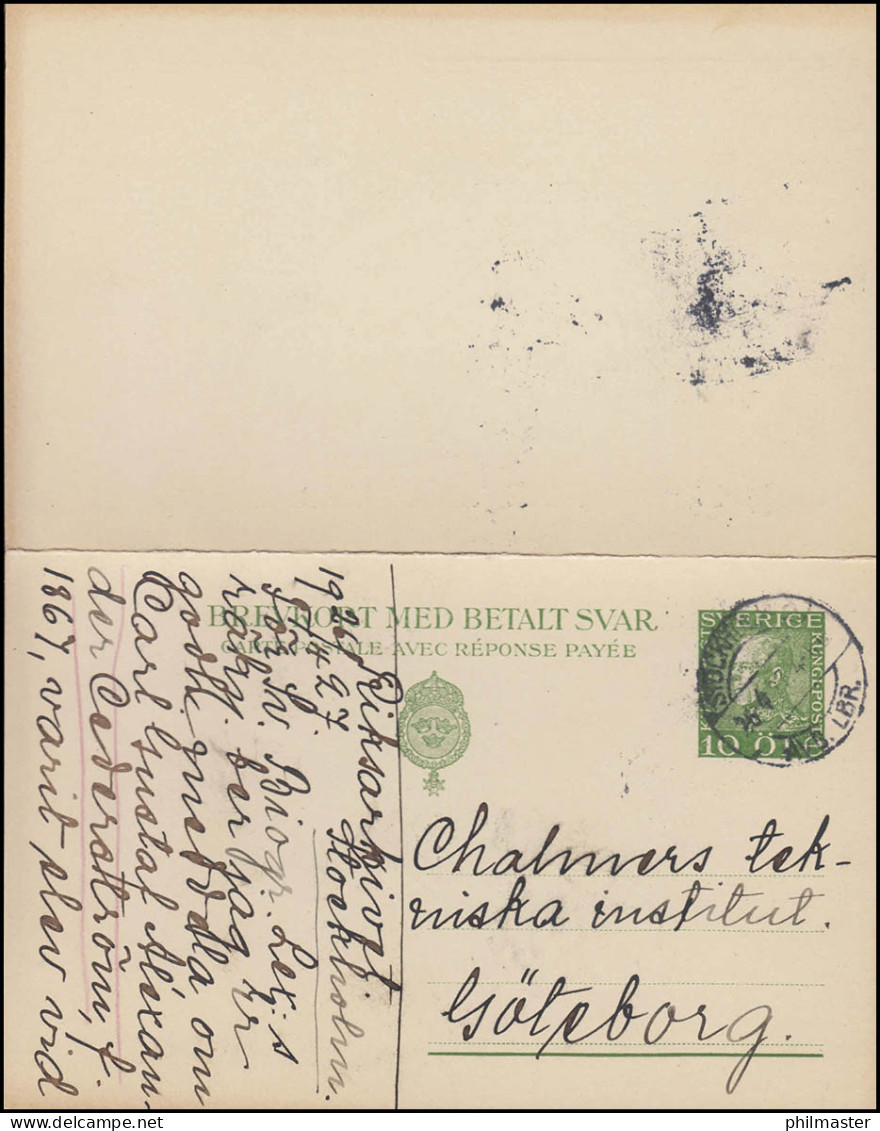 BREVKORT MED BETALT SVAR
CARTE POSTALE AVEC RÉPONSE PAYÉE
SVERIGE
KUNGL·POST
10 ÖRE
26 4
LBR.
Chalmers tek-
niska institut.
Göteborg.
Riksarkivet.
Stockholm.
1926
För Sv. Biogr. Lex:s
räkn. ber jag Er
godh. meddela om
Carl Gustaf Alexan-
der Cederström, f.
1867, varit elev vid
philmaster
philmaster